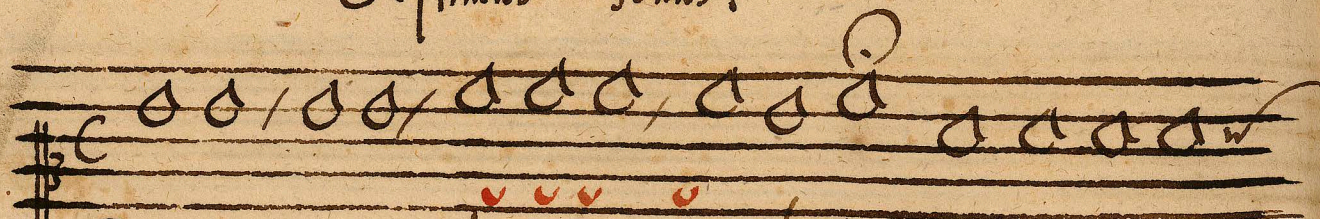 Septimus Tonus.